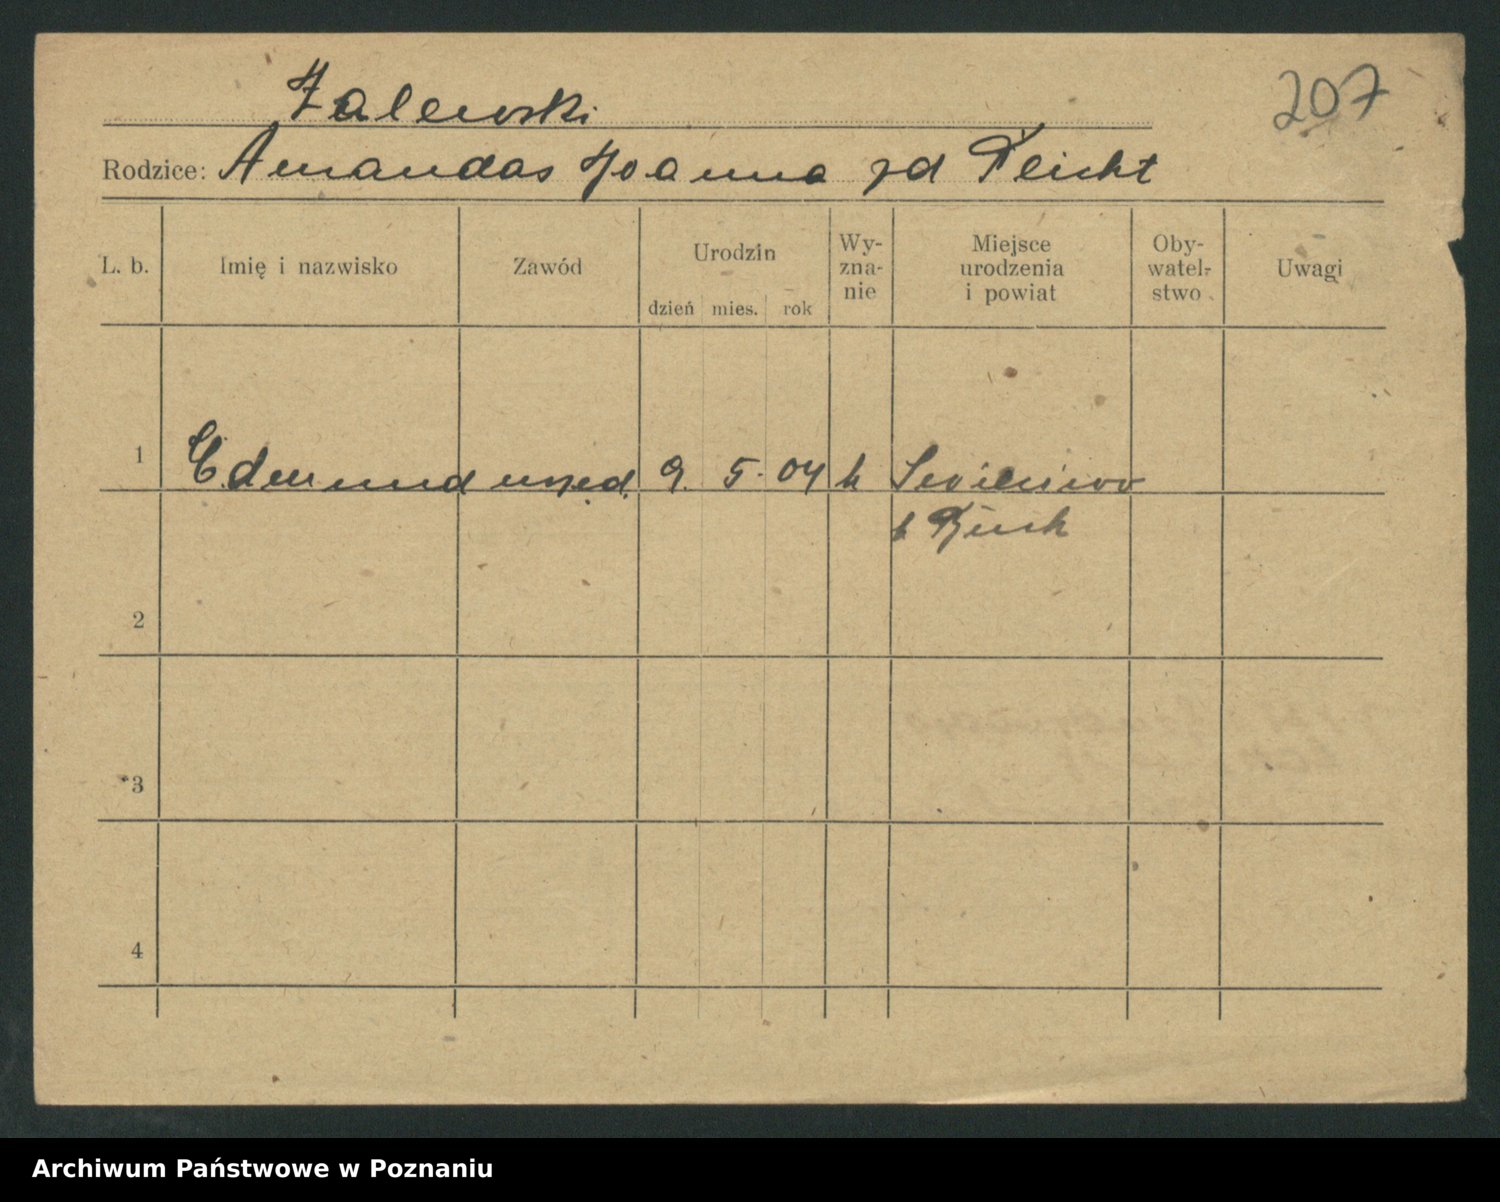 Zalewski
207
Rodzice: Amandas Joanna zd Fleicht
L. b. Imię i nazwisko Zawód Urodzin Wy-zna-nie Miejsce urodzenia i powiat Oby-watel-stwo Uwagi
dzień mies. rok
1 Edmund urzęd. 9. 5. 04 k
2
3
4
Archiwum Państwowe w Poznaniu